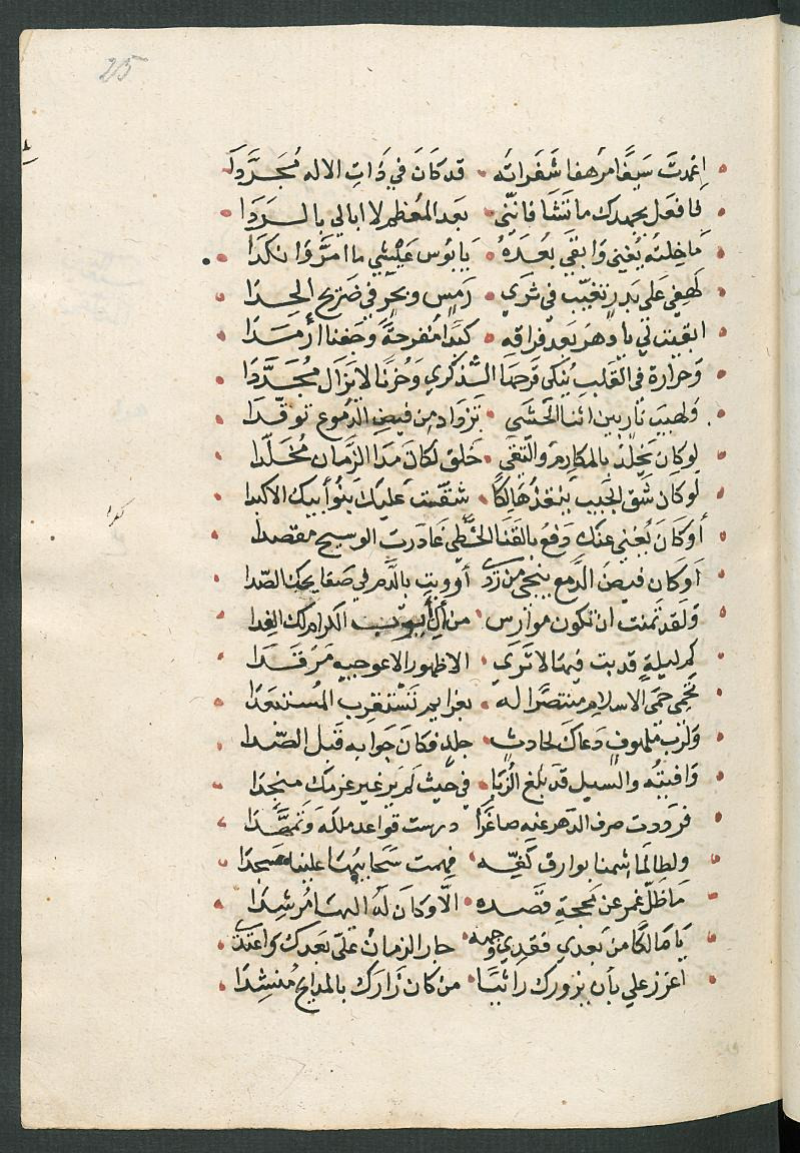 25
اغمدت سيفا مرهفا شفراته قد كان في ذات الاله مجردا
فافعل بجهدك ما تشا فانني بعد المعظم لا ابالي بالردا
ما خلته يفنى وابقى بعده يا بوس عيشي ما امر وانكدا
لهفي على بدر تغيب في ثري رمس وبحر في ضريح الحدا
ابقيت لي يا دهر بعد فراقه كبدا مقرحة وجفنا ارمدا
وحرارة في القلب ينكي قرحها التذكري وحزنا لا يزال مجددا
ولهيب نار بين اثنا الحشى تزواد من فيض الدموع توقدا
لو كان يخلد بالمكارم والتقى خلق لكان مدا الزمان مخلدا
لو كان شق الجيب ينقذ هالكا شقت عليك بنوا ابيك الاكبدا
أو كان يغني عنك دفع بالقنا الخطي غادرت الوسيج مقصدا
او كان فيض الدمع ينجي من ردى أوويت بالدم في صفايحك الصدا
ولقد تمنت ان تكون موارس من ال أيوب الكرام لك الفدا
كم ليلة قد بت فيها لا تري الا ظهور الاعوجيه مرقدا
تحمي حمى الاسلام منتصرا له بعزايم تستقرب المستبعدا
ولرب ملهوف دعاك لحادث جلل فكان جوابه قبل الصدا
وافيته والسيل قد بلغ الزبا في حيث لم ير غير عزمك منجدا
فرددت صرف الدهر عنه صاغرا ورست قواعد ملكه وتمهدا
ولطالما شمنا بوارق كفه فهمت سحايبها علينا عسجدا
ما ظل غمر عن محجة قصده الا وكان له اليها مرشدا
يا مالكا من بعدي فقدي وجهه جار الزمان على بعدك واعتدى
اعزز علي بأن يزورك راثيا من كان زارك بالمدايح منشدا